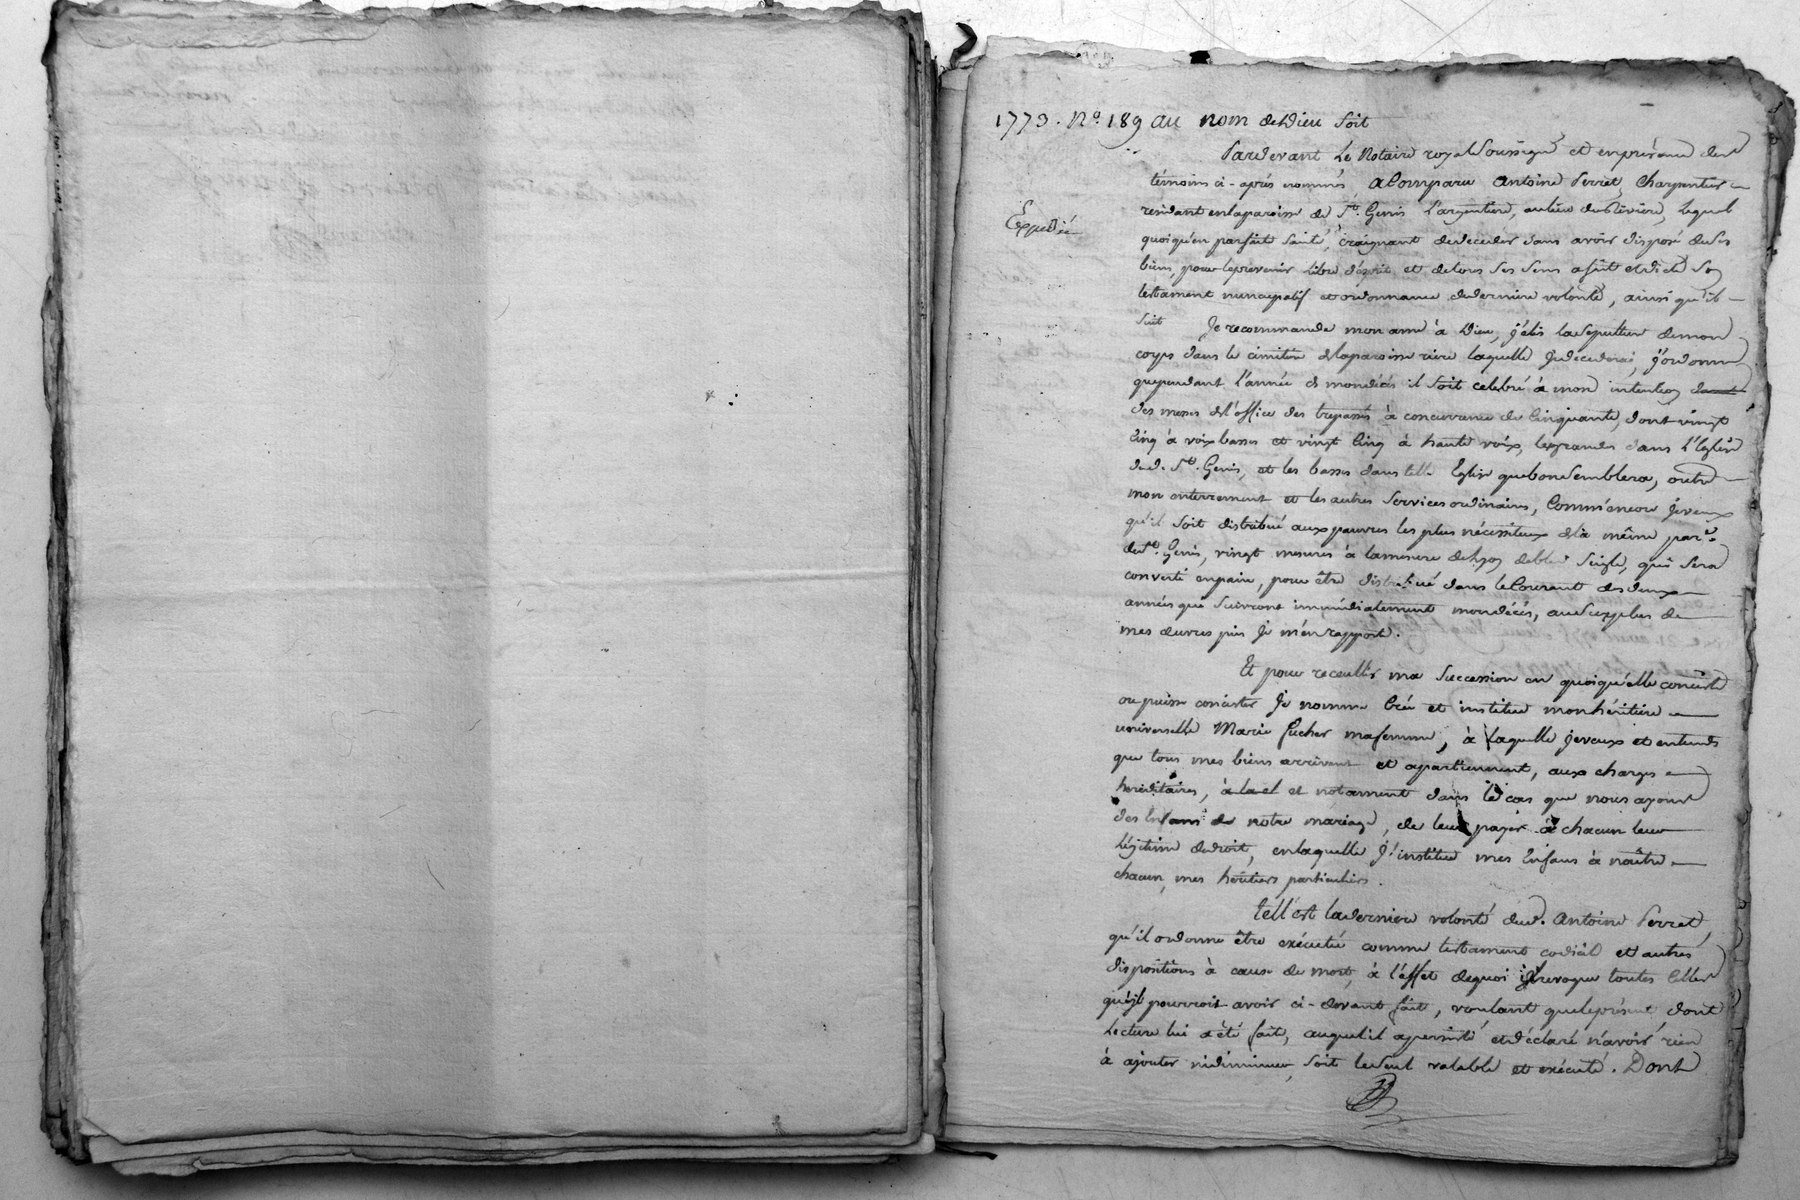 1773. No. 189 au nom de Dieu soit
Pardevant Le Notaire royal Soussigné et en présence des
témoins ci-après nommés, a Comparu Antoine Perret, Charpentier
residant en la paroisse de St. Genis L'argentiere, au lieu de Riviere, lequel
Expediée
quoiqu'en parfaite santé, craignant de deceder sans avoir disposé de ses
biens, pour le prevenir libre d'esprit et de tous ses sens a fait et dicté son
testament nuncupatif et ordonnance de derniere volonté, ainsi qu'il
suit Je recommande mon ame à Dieu, j'élis la sepulture de mon
corps dans le cimitiere de la paroisse riere laquelle je decederai, j'ordonne
que pendant l'année de mon décés il soit celebré à mon intention
des messes de l'office des trepassés à concurrence de Cinquante, dont vingt
Cinq à voix basses et vingt Cinq à haute voix, les grandes dans L'Eglise
dud. St. Genis, et les basses dans telle Eglise que bon semblera, outre
mon enterrement et les autres services ordinaires, Comm'encore je veux
qu'il soit distribué aux pauvres les plus nécessiteux de la même parse.
de St. Genis, vingt mesures à la mesure de Lyon de bled seigle, qui sera
converti en pain, pour être distribué dans le Courant des deux
années qui suivront immédiatement mon décés, au surplus de
mes œuvres pies je m'en rapporte.
Et pour receuillir ma succession en quoiqu'elle consiste
ou puisse consister je nomme Crée et institue mon héritiere
universelle Marie Fucher ma femme, à laquelle je veux et entends
que tous mes biens arrivent et apartiennent, aux charges
hereditaires, à la el et notament dans le cas que nous ayons
des Enfans de notre mariage, de leur payer à chacun leur
Légitime de droit, en laquelle j'institue mes Enfans à naître
chacun, mes héritiers particuliers.
tell'est la derniere volonté dud. Antoine Perret,
qu'il ordonne être exécutée comme testament codicil et autres
dispositions à cause de mort, à l'effet de quoi il revoque toutes Celles
qu'il pourroit avoir ci-devant fait, voulant que le présent dont
Lecture lui a été faite, auquel il a persisté et déclaré n'avoir rien
à ajouter ni diminuer, soit le seul valable et exécuté. Dont